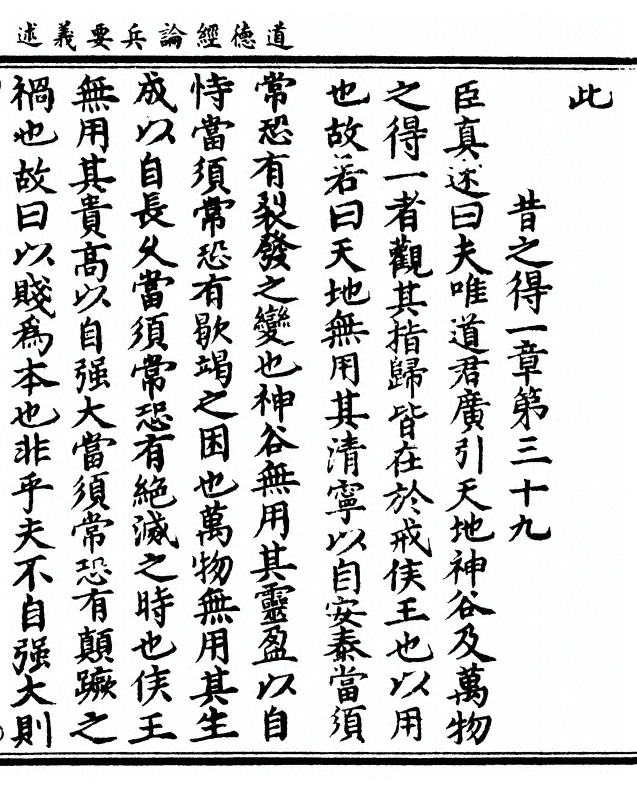 道德經論兵要義述
此
昔之得一章第三十九
臣真述曰夫唯道君廣引天地神谷及萬物
之得一者觀其指歸皆在於戒侯王也以用
也故若曰天地無用其清寧以自安泰當須
常恐有裂發之變也神谷無用其靈盈以自
恃當須常恐有歇竭之困也萬物無用其生
成以自長久當須常恐有絕滅之時也侯王
無用其貴高以自强大當須常恐有顛蹶之
禍也故曰以賤為本也非乎夫不自强大則